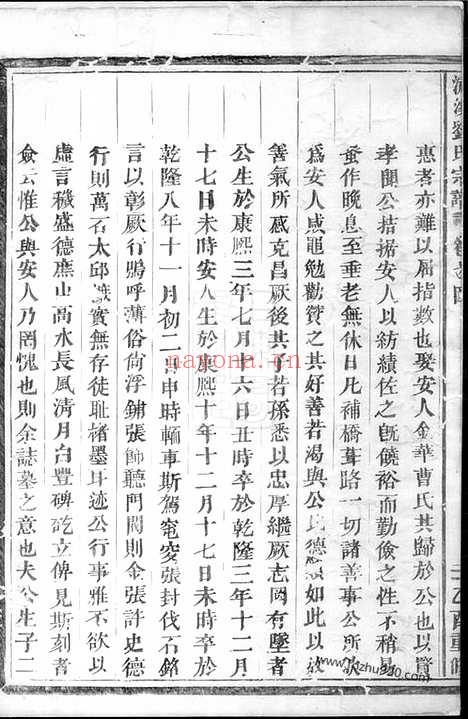 劉氏宗譜
乙酉重修
惠者亦難以屈指數也娶安人金華曹氏其歸於公也以賢
孝聞公拮据安人以紡績佐之旣饒裕而勤儉之性不稍易
蚤作晚息至垂老無休日凡補橋葺路一切諸善事公所欲
爲安人咸黽勉勸贊之其好善若渴與公比德 如此以故
善氣所感克昌厥後其子若孫悉以忠厚繼厥志罔有墜者
公生於康熙三年七月十六日丑時卒於乾隆三年十二月
十七日未時安人生於康熙十年十二月十七日未時卒於
乾隆八年十一月初二日申時輀車斯駕窀穸張封伐石銘
言以彰厥行嗚呼薄俗尙浮鋪張飾聽門閥則金張許史德
行則萬石太邱 實無存徒耻楮墨耳迹公行事雅不欲以
虛言穢盛德蕉山高水長風清月白豐碑乾立俾見斯刻者
僉云惟公與安人乃罔愧也則余誌墓之意也夫公生子二
nayona.cn
zhuji8.com